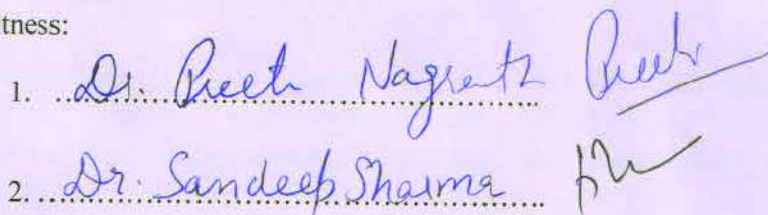 tness:
1. Dr. Preeti Nagrath Preeti
2. Dr. Sandeep Sharma